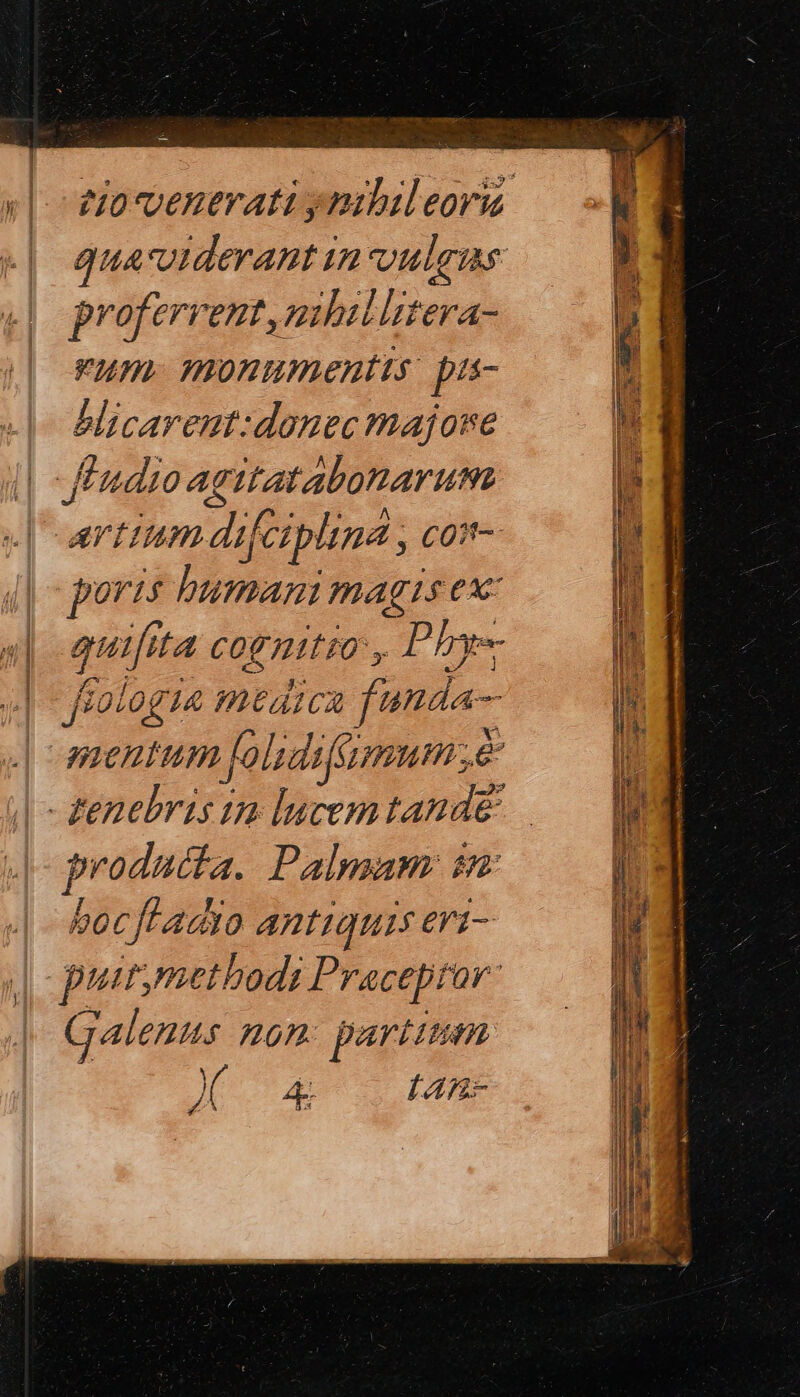 tio venerati, nihil eorũ
quæ viderant in vulgus
proferrent, nihil litera-
rum monumentis pu-
blicarent: donec majore
ſtudio agitatâ bonarum
artium diſciplinâ, cor-
poris humani magis ex-
quiſita cognitio, Phy-
ſiologiæ medicæ funda-
mentum ſolidiſſimum, è
tenebris in lucem tandẽ
producta. Palmam in
hoc ſtadio antiquis eri-
puit, methodi Præceptor
Galenus non partium
)( 4 tan-